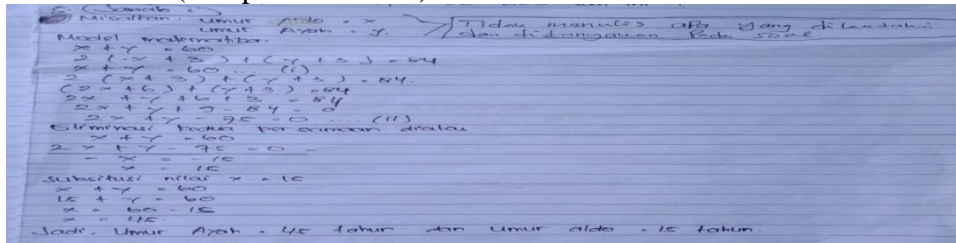 5. (Jawab:)
Misalkan: umur Aldo = x
umur Ayah = y.
Tidak menulis apa yang diketahui
dan ditanyakan pada soal.
Model matematika.
x + y = 60
2 (x + 3) + (y + 3) = 84
x + y = 60 ... (i)
2 (x + 3) + (y + 3) = 84.
(2x + 6) + (y + 3) = 84
2x + y + 6 + 3 = 84
2x + y + 9 - 84 = 0
2x + y - 75 = 0 .... (ii)
Eliminasi kedua persamaan diatas
x + y = 60
2x + y - 75 = 0 -
- x = -15
x = 15
Subsitusi nilai x = 15
x + y = 60
15 + y = 60
x = 60 - 15
x = 45.
Jadi. Umur Ayah = 45 tahun dan umur aldo = 15 tahun.